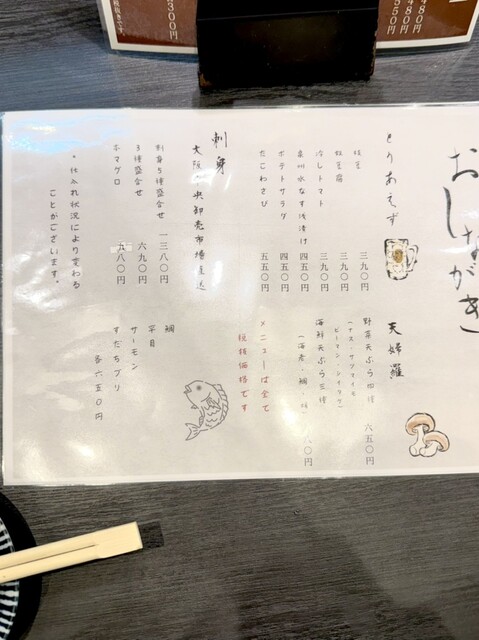 おしながき
とりあえず
枝豆 三九〇円
枝豆腐 三九〇円
冷しトマト 三九〇円
泉州水なす浅漬け 四五〇円
ポテトサラダ 四五〇円
たこわさび 五五〇円
天婦羅
野菜天ぷら四種 六五〇円
海鮮天ぷら三種 八〇円
メニューは全て
税抜価格です
刺身
大阪 央卸売市場直送
刺身5種盛合せ 一三八〇円
3種盛合せ 六九〇円
本マグロ 九八〇円
鯛
平目
サーモン
すだちブリ
各六五〇円
・仕入れ状況により変わる
ことがございます。
300円
税抜きです
480円
480円
550円